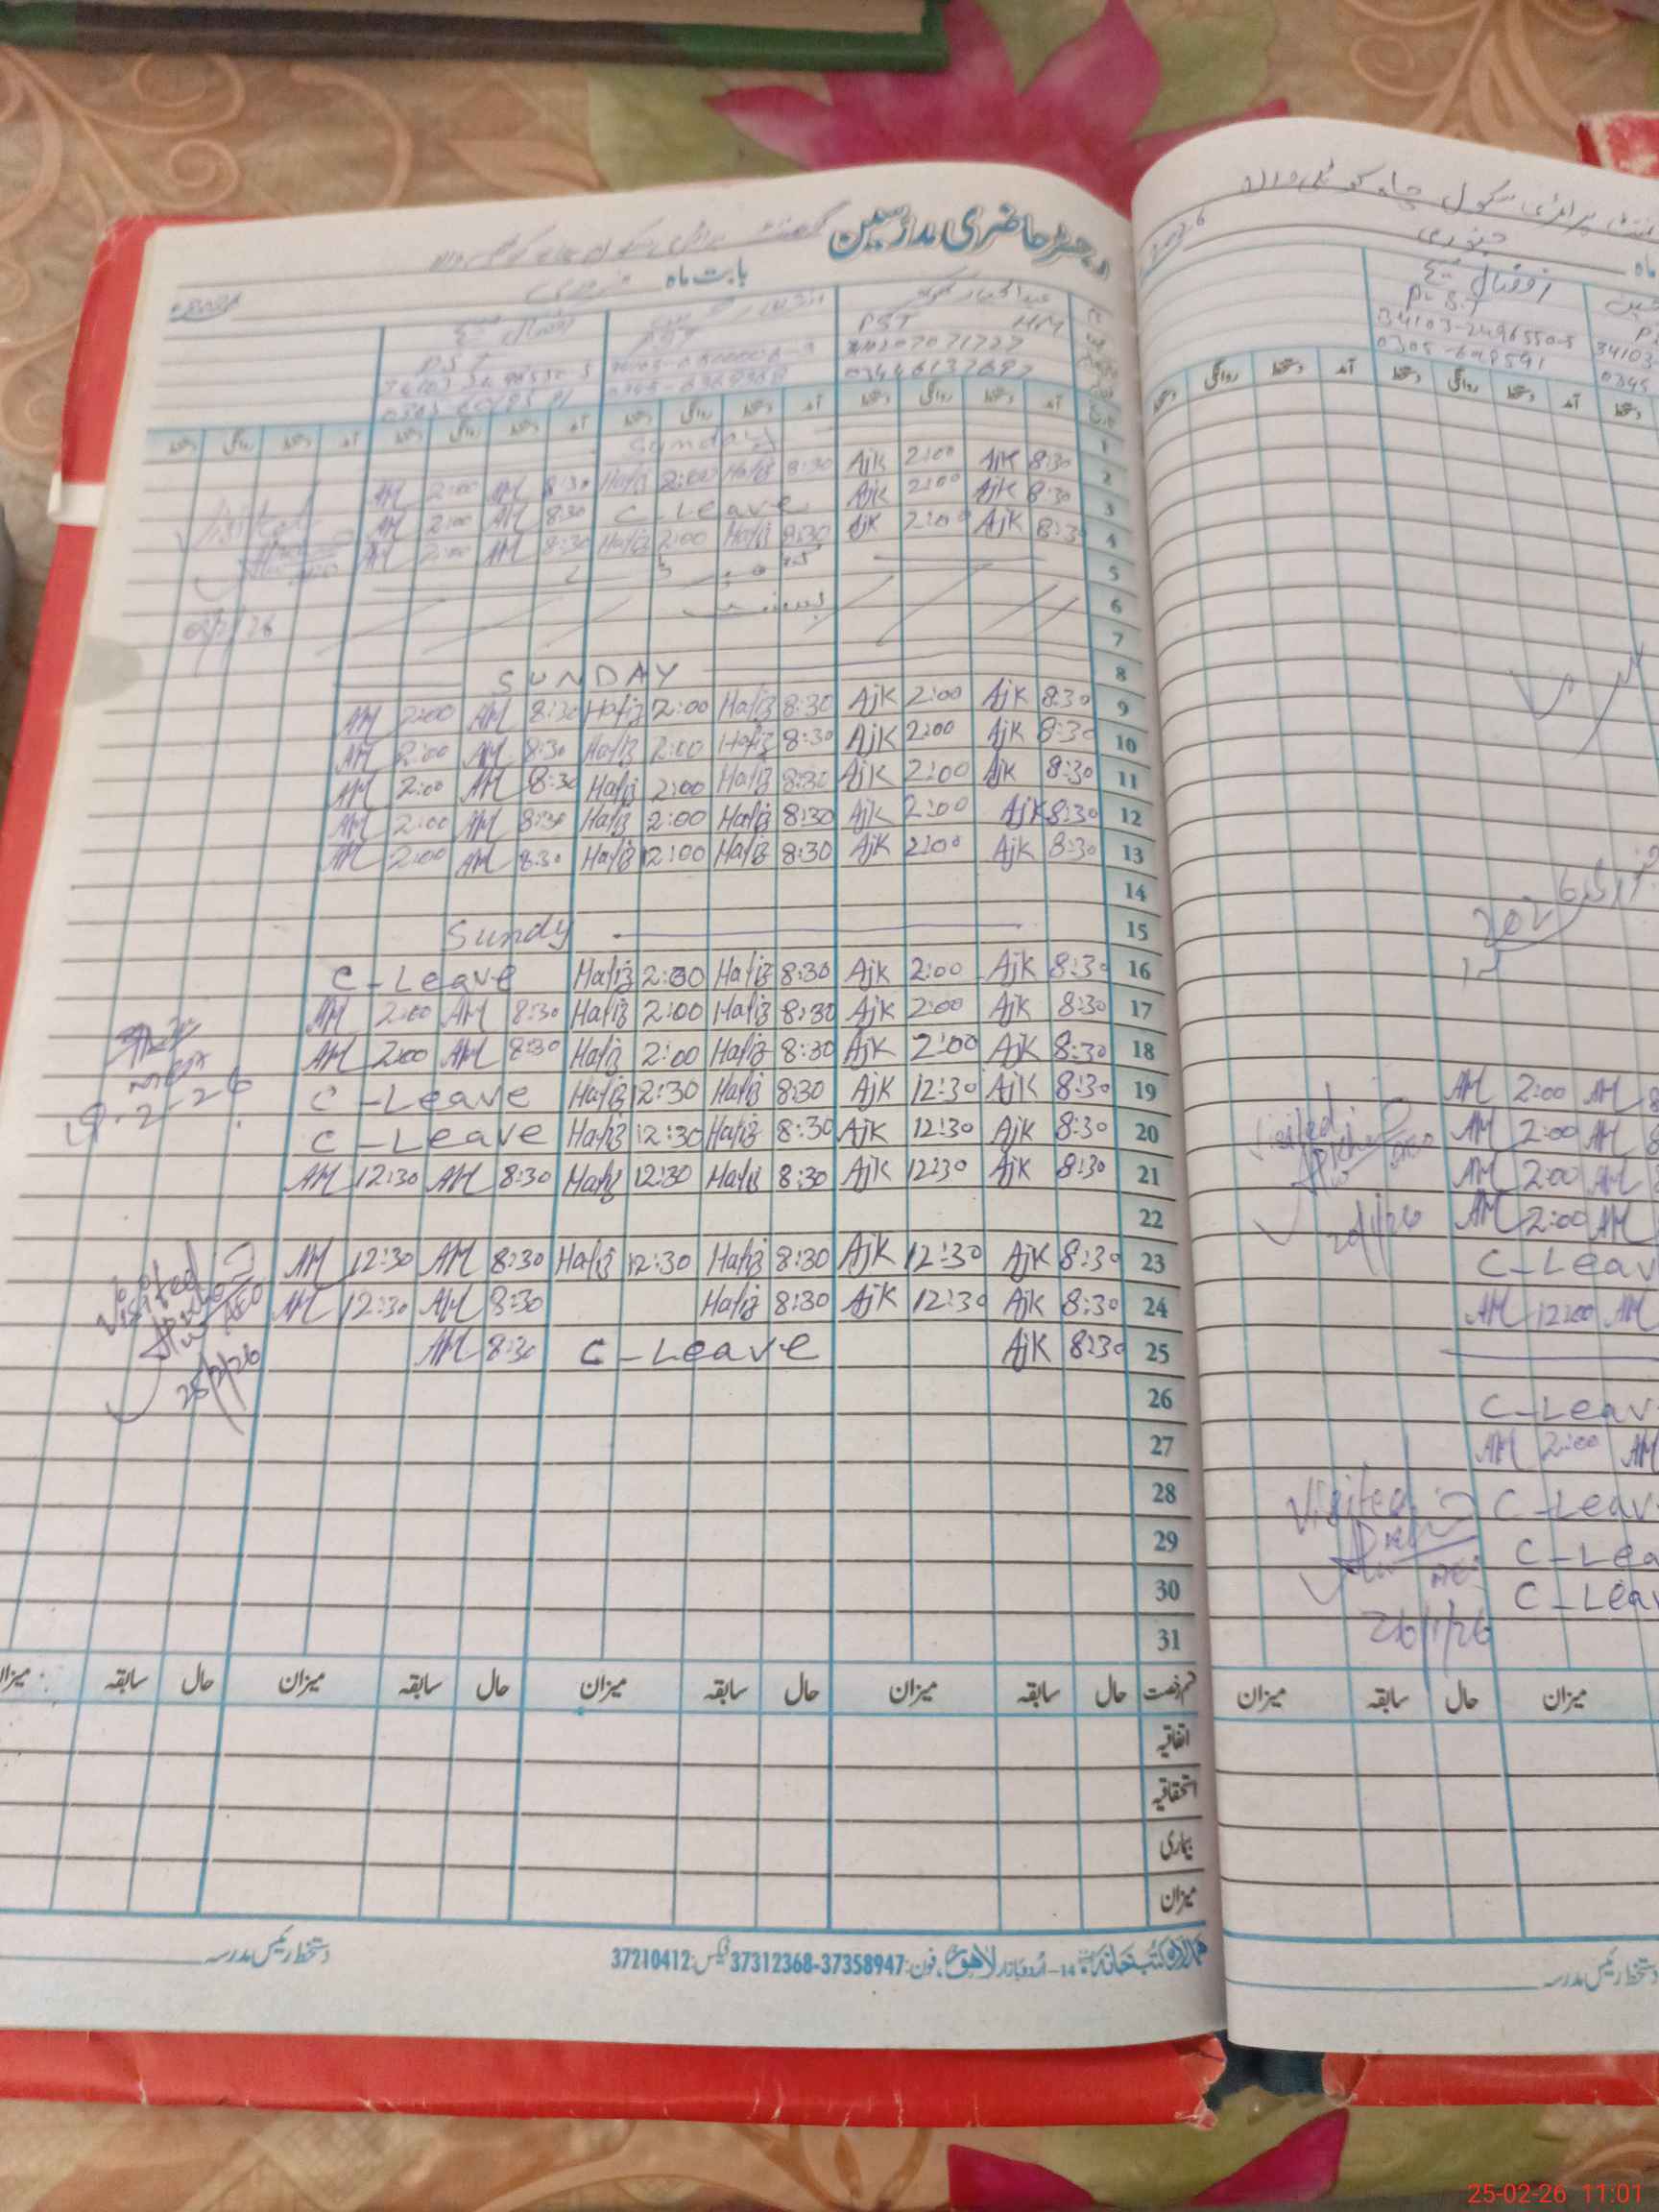 رجسٹر حاضری مدرسین
بابت ماہ
PST HM
03446137697
PST
PST
آمد دستخط روانگی دستخط آمد دستخط روانگی دستخط آمد دستخط روانگی دستخط آمد دستخط روانگی دستخط
1 Sunday
2 8:30 Ajk 2:00 Ajk 8:30 Hafiz 2:00 Hafiz 8:30 AM 2:00 AM
3 8:30 Ajk 2:00 Ajk C-Leave 8:30 AM 2:00 AM
4 8:30 Ajk 2:00 Ajk 8:30 Hafiz 2:00 Hafiz 8:30 AM 2:00 AM
Visited
5
6
7
8 SUNDAY
9 8:30 Ajk 2:00 Ajk 8:30 Hafiz 2:00 Hafiz 8:30 AM 2:00 AM
10 8:30 Ajk 2:00 Ajk 8:30 Hafiz 2:00 Hafiz 8:30 AM 2:00 AM
11 8:30 Ajk 2:00 Ajk 8:30 Hafiz 2:00 Hafiz 8:30 AM 2:00 AM
12 8:30 Ajk 2:00 Ajk 8:30 Hafiz 2:00 Hafiz 8:30 AM 2:00 AM
13 8:30 Ajk 2:00 Ajk 8:30 Hafiz 2:00 Hafiz 8:30 AM 2:00 AM
14
15 Sundy
16 8:30 Ajk 2:00 Ajk 8:30 Hafiz 2:00 Hafiz C-Leave
17 8:30 Ajk 2:00 Ajk 8:30 Hafiz 2:00 Hafiz 8:30 AM 2:00 AM
18 8:30 Ajk 2:00 Ajk 8:30 Hafiz 2:00 Hafiz 8:30 AM 2:00 AM
19 8:30 Ajk 12:30 Ajk 8:30 Hafiz 12:30 Hafiz C-Leave
20 8:30 Ajk 12:30 Ajk 8:30 Hafiz 12:30 Hafiz C-Leave
21 8:30 Ajk 12:30 Ajk 8:30 Hafiz 12:30 Hafiz 8:30 AM 12:30 AM
22
23 8:30 Ajk 12:30 Ajk 8:30 Hafiz 12:30 Hafiz 8:30 AM 12:30 AM
24 8:30 Ajk 12:30 Ajk 8:30 Hafiz 8:30 AM 12:30 AM
Visited
25 8:30 Ajk C-Leave 8:30 AM
25/2/26
26
27
28
29
30
31
قسم رخصت حال سابقہ میزان حال سابقہ میزان حال سابقہ میزان حال سابقہ میزان
اتفاقیہ
استحقاقیہ
بیماری
میزان
14-اُردو بازار لاہور، فون: 37312368-37358947 فیکس: 37210412
دستخط رئیس مدرسہ
جنوری
افضال مسیح
P.S.T
34103-2496550-5
34103
0345
دستخط آمد دستخط روانگی دستخط آمد دستخط روانگی دستخط
AM 2:00 AM
AM 2:00 AM
AM 2:00 AM
AM 2:00 AM
Visited
C-Leav
AM 12:00 AM
C-Leav
AM 2:00 AM
Visited
C-Leav
C-Lea
C-Leav
26/1/26
میزان حال سابقہ میزان
دستخط رئیس مدرسہ
25-02-26 11:01